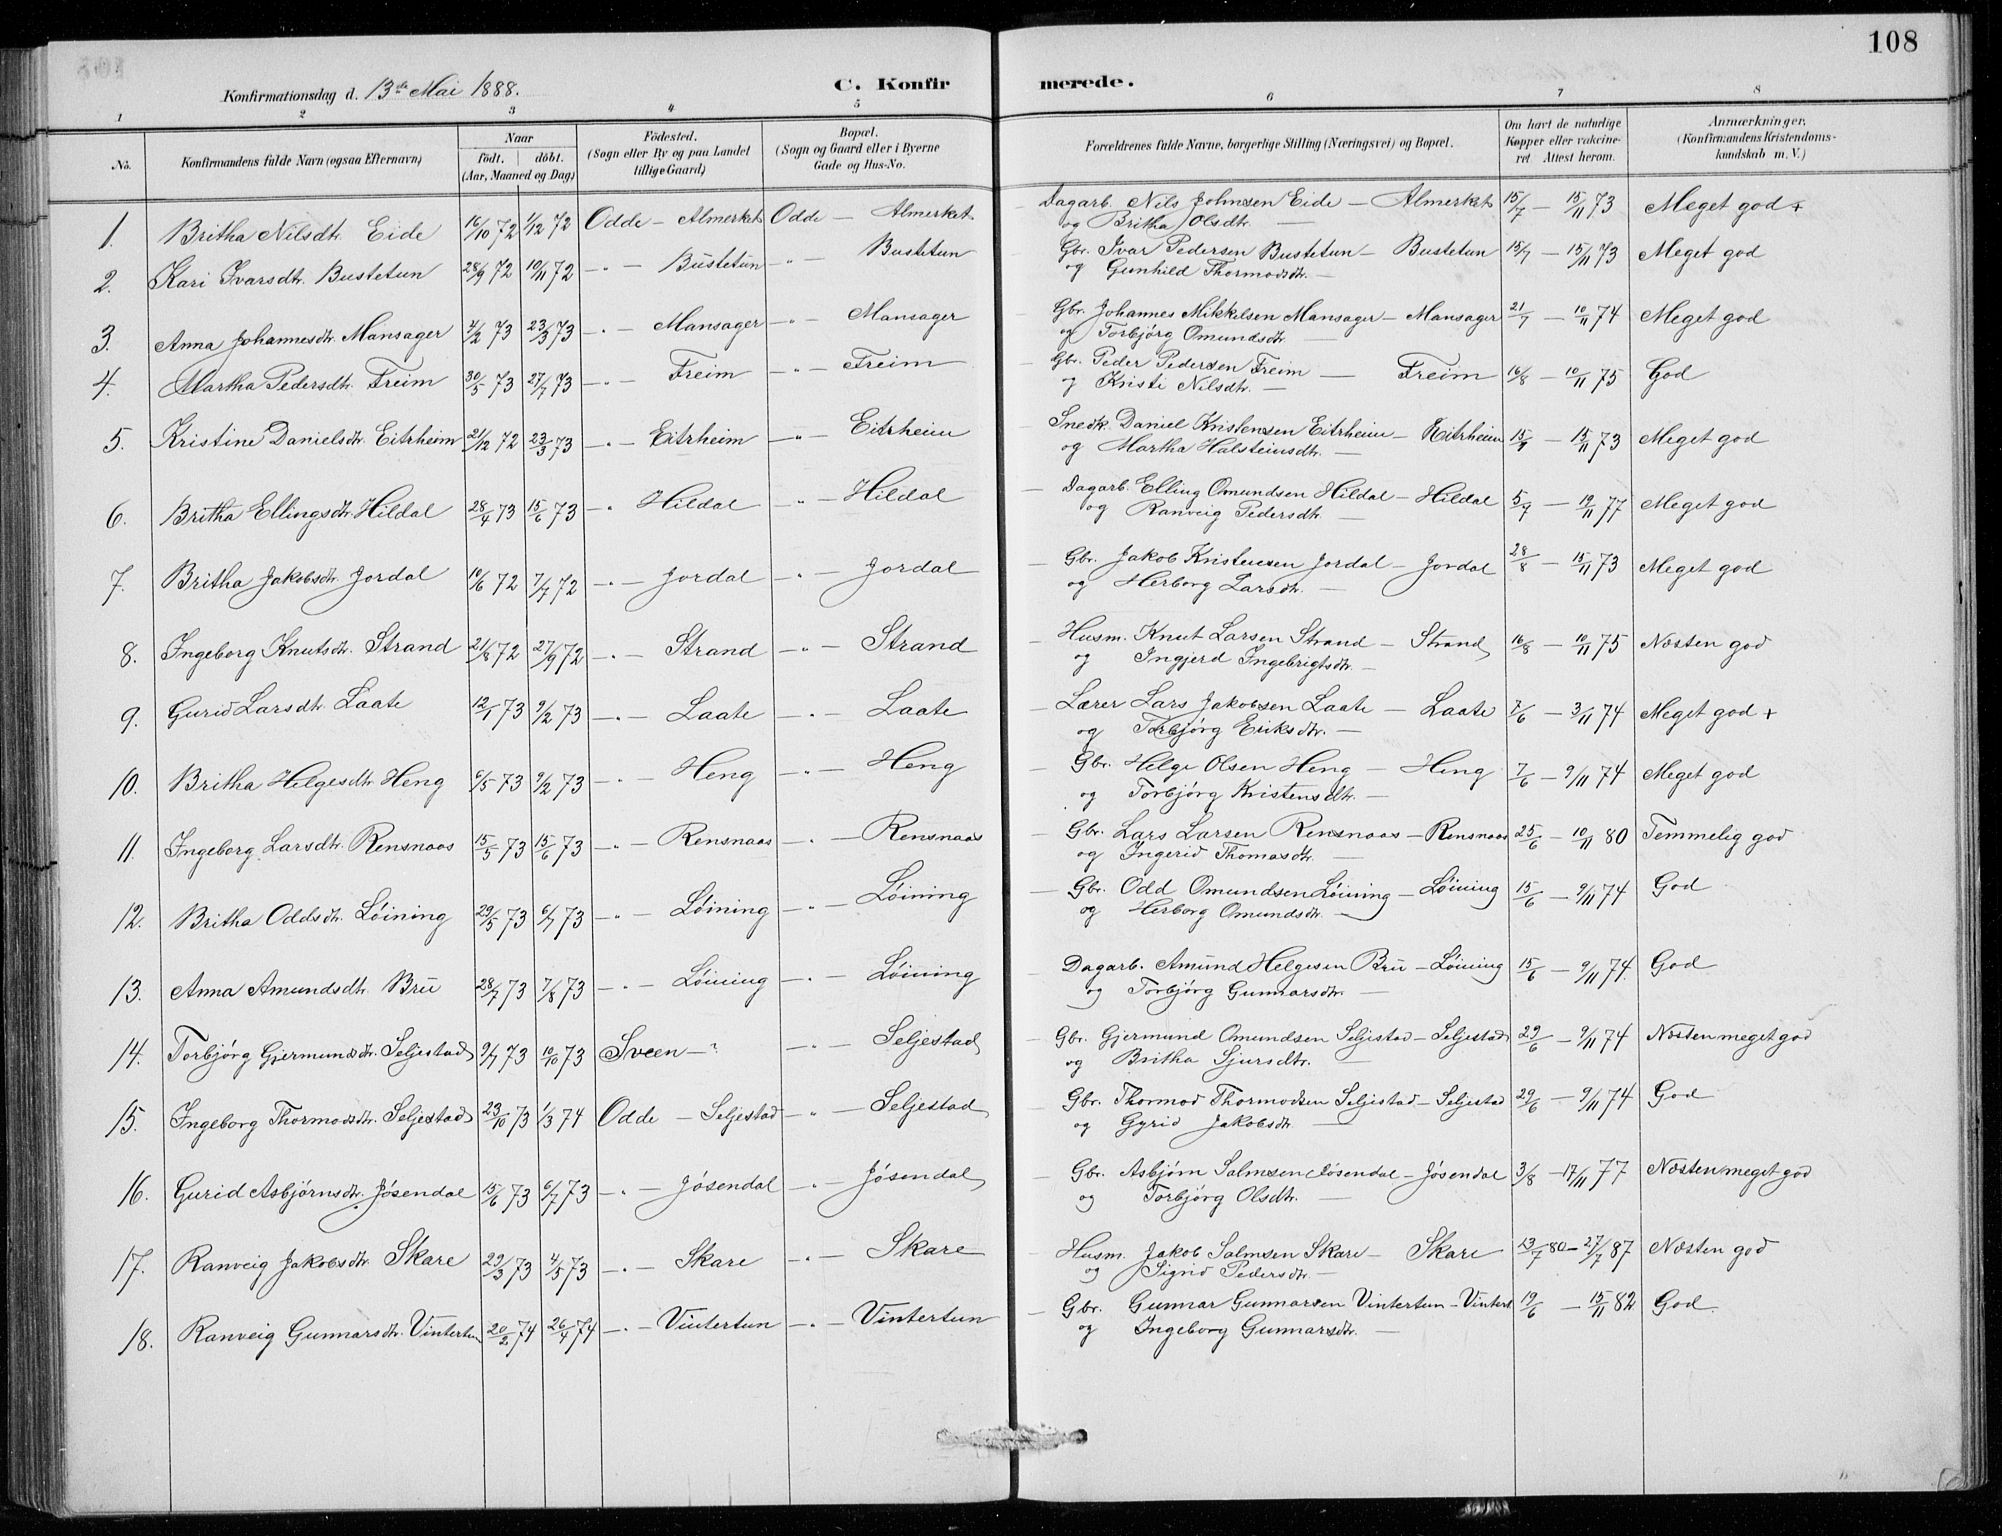 108
Konfirmationsdag d. 13de Mai 1888.
C. Konfirmerede.
1 2 3 4 5 6 7 8
No.
Konfirmandens fulde Navn (ogsaa Efternavn)
Naar
født. døbt.
(Aar, Maaned og Dag)
Fødested.
(Sogn eller By og paa Landet
tillige Gaard)
Bopæl.
(Sogn og Gaard eller i Byerne
Gade og Hus-No.
Forældrenes fulde Navne, borgerlige Stilling (Næringsvei) og Bopæl.
Om havt de naturlige
Kopper eller vakcine-
ret. Attest herom.
Anmærkninger.
(Konfirmandens Kristendoms-
kundskab m. V.)
1. Britha Nilsdtr. Eide 16/10 72 1/12 72 Odde — Almerket Odde — Almerket — Dagarb. Nils Johnsen Eide — Almerket 15/7 — 15/11 73 Meget god +
og Britha Olsdtr. —
2. Kari Ivarsdtr. Bustetun 28/9 72 10/11 72 — " — Bustetun — " — Bustetun — Gbr. Ivar Pedersen Bustetun — Bustetun 15/7 — 15/11 73 Meget god
og Gunhild Thormodsdtr. —
3. Anna Johannesdtr. Mansager 4/2 73 23/3 73 — " — Mansager — " — Mansager — Gbr. Johannes Mikkelsen Mansager — Mansager 21/7 — 10/11 74 Meget god
og Torbjörg Omundsdtr. —
4. Martha Pedersdtr. Freim 30/5 73 27/7 73 — " — Freim — " — Freim — Gbr. Peder Pedersen Freim — Freim 16/8 — 10/11 75 God
og Kristi Nilsdtr. —
5. Kristine Danielsdtr. Eitrheim 21/12 72 23/3 73 — " — Eitrheim — " — Eitrheim Snedk. Daniel Kristensen Eitrheim — Eitrheim 15/7 — 15/11 73 Meget god
og Martha Halsteinsdtr. —
6. Britha Ellingsdtr. Hildal 28/4 73 15/6 73 — " Hildal " — Hildal — Dagarb. Elling Omundsen Hildal — Hildal 5/7 — 19/11 77 Meget god
og Ranveig Pedersdtr. —
7. Britha Jakobsdtr. Jordal 10/6 72 7/7 72 — " — Jordal — " — Jordal — Gbr. Jakob Kristensen Jordal — Jordal 28/8 — 15/11 73 Meget god
og Herborg Larsdtr. —
8. Ingeborg Knutsdtr. Strand 21/8 72 27/9 72 — " — Strand — " — Strand — Husm. Knut Larsen Strand — Strand 16/8 — 10/11 75 Næsten god
og Ingjerd Ingebrigtsdtr. —
9. Gurid Larsdtr. Laate 12/1 73 9/2 73 — " — Laate — " — Laate — Lærer Lars Jakobsen Laate — Laate 7/6 — 3/11 74 Meget god +
og Torbjörg Eriksdtr. —
10. Britha Helgesdtr. Heng 6/5 73 9/2 73 — " — Heng — " — Heng — Gbr. Helge Olsen Heng — Heng 7/6 — 9/11 74 Meget god
og Torbjörg Kristensdtr. —
11. Ingeborg Larsdtr. Rensnaas 15/5 73 15/6 73 — " — Rensnaas — " — Rensnaas — Gbr. Lars Larsen Rensnaas — Rensnaas 25/6 — 10/11 80 Temmelig god
og Ingerid Thomasdtr. —
12. Britha Oddsdtr. Löining 29/5 73 6/7 73 — " — Löining — " — Löining — Gbr. Odd Omundsen Löining — Löining 15/6 — 9/11 74 God
og Herborg Omundsdtr. —
13. Anna Amundsdtr. Bru 28/7 73 7/8 73 — " — Löining — " — Löining — Dagarb. Amund Helgesen Bru — Löining 15/6 — 9/11 74 God
og Torbjörg Gunnarsdtr. —
14. Torbjörg Gjermundsdtr. Seljestad 9/7 73 19/10 73 Sveen — ? — " — Seljestad — Gbr. Gjermund Omundsen Seljestad — Seljestad 29/6 — 9/11 74 Næsten meget god
og Britha Sjursdtr. —
15. Ingeborg Thormodsdtr. Seljestad 23/10 73 1/3 74 Odde — Seljestad — " — Seljestad — Gbr. Thormod Thormodsen Seljestad — Seljestad 29/6 — 9/11 74 God
og Gyrid Jakobsdtr. —
16. Gurid Asbjörnsdtr. Jösendal 15/6 73 6/7 73 — " — Jösendal — " — Jösendal — Gbr. Asbjörn Salmsen Jösendal — Jösendal 3/8 — 17/11 77 Næsten meget god
og Torbjörg Olsdtr. —
17. Ranveig Jakobsdtr. Skare 29/3 73 4/5 73 — " — Skare — " — Skare — Husm. Jakob Salmsen Skare — Skare 13/7 80 — 27/7 87 Næsten god
og Sigrid Pedersdtr. —
18. Ranveig Gunnarsdtr. Vintertun 20/2 74 26/4 74 — " — Vintertun — " — Vintertun — Gbr. Gunnar Gunnarsen Vintertun — Vintert 19/6 — 15/11 82 God.
og Ingeborg Gunnarsdtr. —